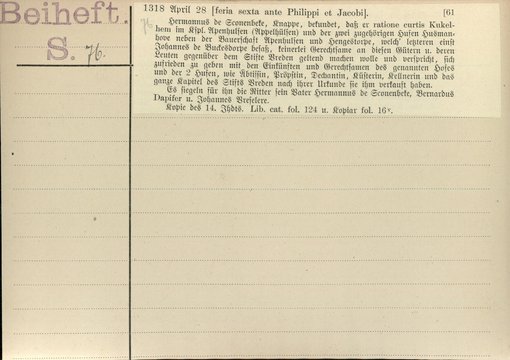 Beiheft.
S. 76.
1318 April 28 [feria sexta ante Philippi et Jacobi]. [61
76
Hermannus de Sconenbeke, Knappe, bekundet, daß er ratione curtis Kukel-
hem im Kspl. Apenhulsen (Appelhülsen) und der zwei zugehörigen Hufen Husman-
hove neben der Bauerschaft Apenhulsen und Hengestorpe, welch' letzteren einst
Johannes de Buckesdorpe besaß, keinerlei Gerechtsame an diesen Gütern u. deren
Leuten gegenüber dem Stifte Vreden geltend machen wolle und verspricht, sich
zufrieden zu geben mit den Einkünften und Gerechtsamen des genannten Hofes
und der 2 Hufen, wie Äbtissin, Pröpstin, Dechantin, Küsterin, Kellnerin und das
ganze Kapitel des Stifts Vreden nach ihrer Urkunde sie ihm verkauft haben.
Es siegeln für ihn die Ritter sein Vater Hermannus de Sconenbeke, Bernardus
Dapifer u. Johannes Vreselere.
Kopie des 14. Jhdts. Lib. cat. fol. 124 u. Kopiar fol. 16ᵛ.